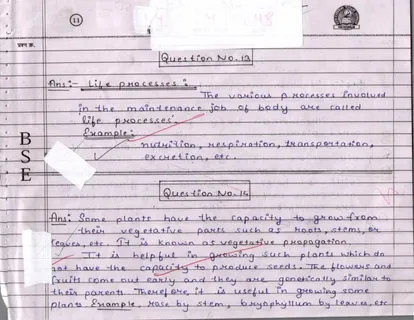 11
प्रश्न क्र.
Question No. 13
Ans:- Life processes:-
The various processes involved
in the maintenance job of body are called
life processes.
Example:
nutrition, respiration, transportation,
excretion, etc.
B
S
E
Question No. 14
Ans: Some plants have the capacity to grow from
their vegetative parts such as roots, stems, or
leaves, etc. It is known as vegetative propagation.
It is helpful in growing such plants which do
not have the capacity to produce seeds. The flowers and
fruits come out early and they are genetically similar to
their parent. Therefore, it is useful in growing some
plants Example, rose by stem, bryophyllum by leaves, etc